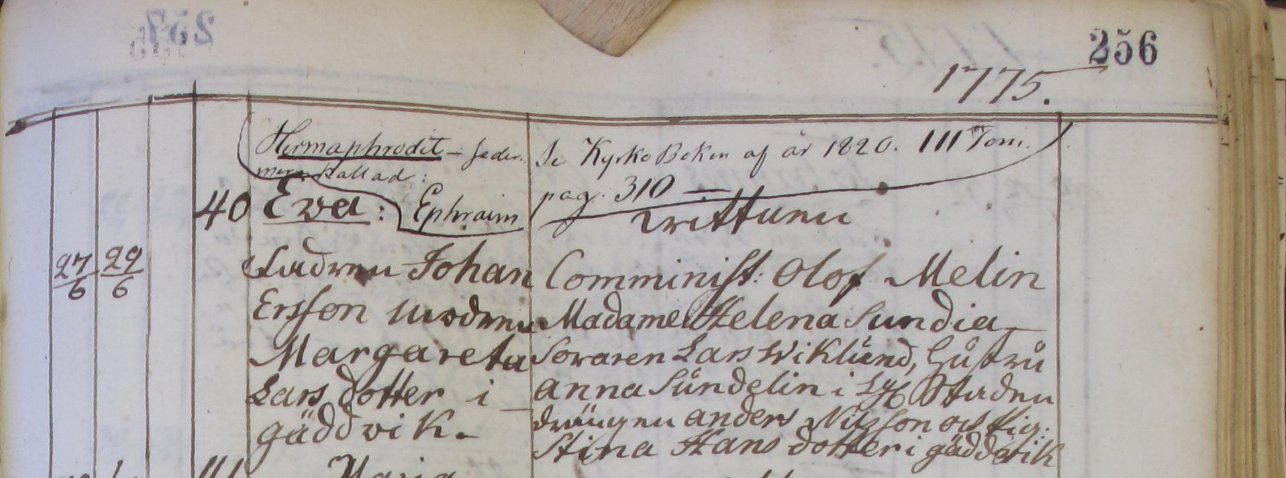 256
1775.
Hermaphrodit – seder-
mera kallad:
Se Kyrko Boken af år 1820. III Tom.
pag. 310 —
40 Eva: Ephraim
Wittnen
27/6 29/6
Fadren Johan
Ersson modren
Margareta
Lars dotter i
gäddvik.
Comminist: Olof Melin
Madame Helena Sundia
Lars Wiklund, hustru
anna Sundelin i Staden
drängen anders Nilsson och Pig:
Stina Hans dotter i gäddvik
Maria